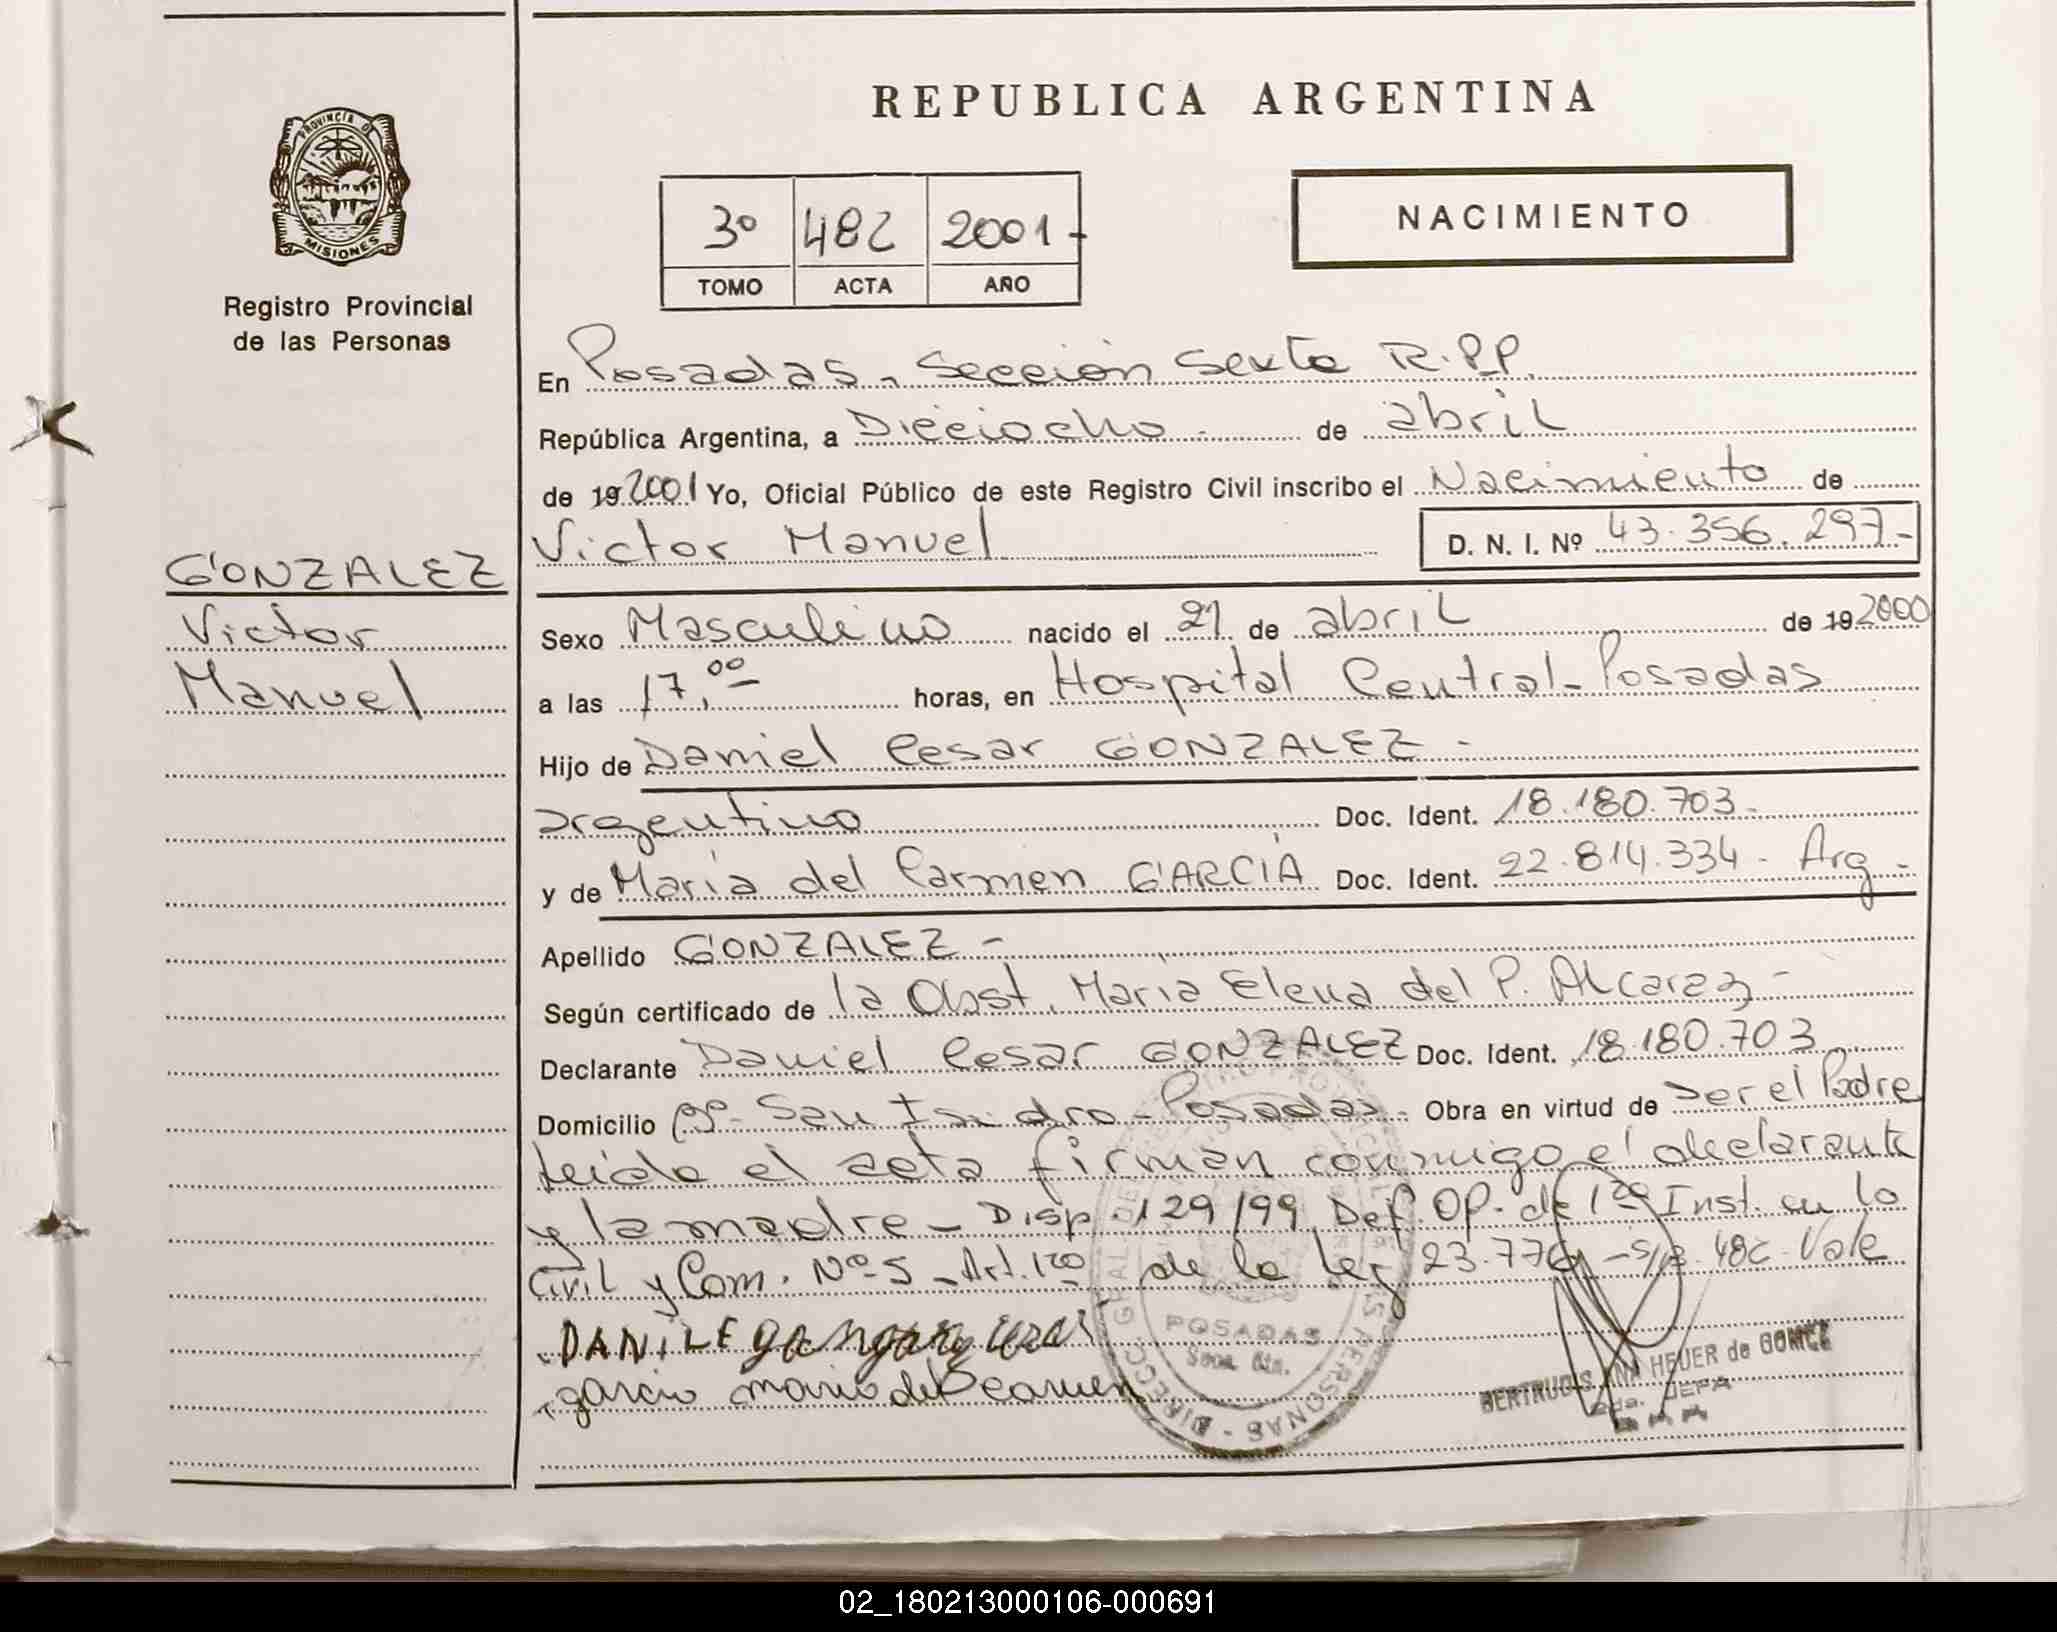 REPUBLICA ARGENTINA
PROVINCIA DE
MISIONES
Registro Provincial
de las Personas
3º 482 2001-
TOMO ACTA AÑO
NACIMIENTO
En Posadas - Sección Sexta R.P.P.
República Argentina, a Dieciocho - de abril
de 19 2001 Yo, Oficial Público de este Registro Civil inscribo el Nacimiento de
Victor Manuel D. N. I. Nº 43.356.297-
GONZALEZ
Victor
Manuel
Sexo Masculino nacido el 21 de abril de 19 2000
a las 17,00 horas, en Hospital Central - Posadas
Hijo de Daniel Cesar GONZALEZ -
argentino Doc. Ident. 18.180.703-
y de María del Carmen GARCIA Doc. Ident. 22.814.334 - Arg -
Apellido GONZALEZ -
Según certificado de la Obst. María Elena del P. Alcaraz -
Declarante Daniel Cesar GONZALEZ Doc. Ident. 18.180.703
Domicilio Bº San Isidro - Posadas - Obra en virtud de ser el Padre
Leída el acta firman conmigo el declarante
y la madre - Disp. 129/99 Def. Of. de 1ra Inst. en lo
Civil y Com. Nº 5 - Art. 1ro de la Ley 23.776 - S/B. 482 - Vale
DANILE
garcia maria del carmen
POSADAS
GERTRUDIS ANA HEUER de GOMEZ
2da. JEFA
02_180213000106-000691